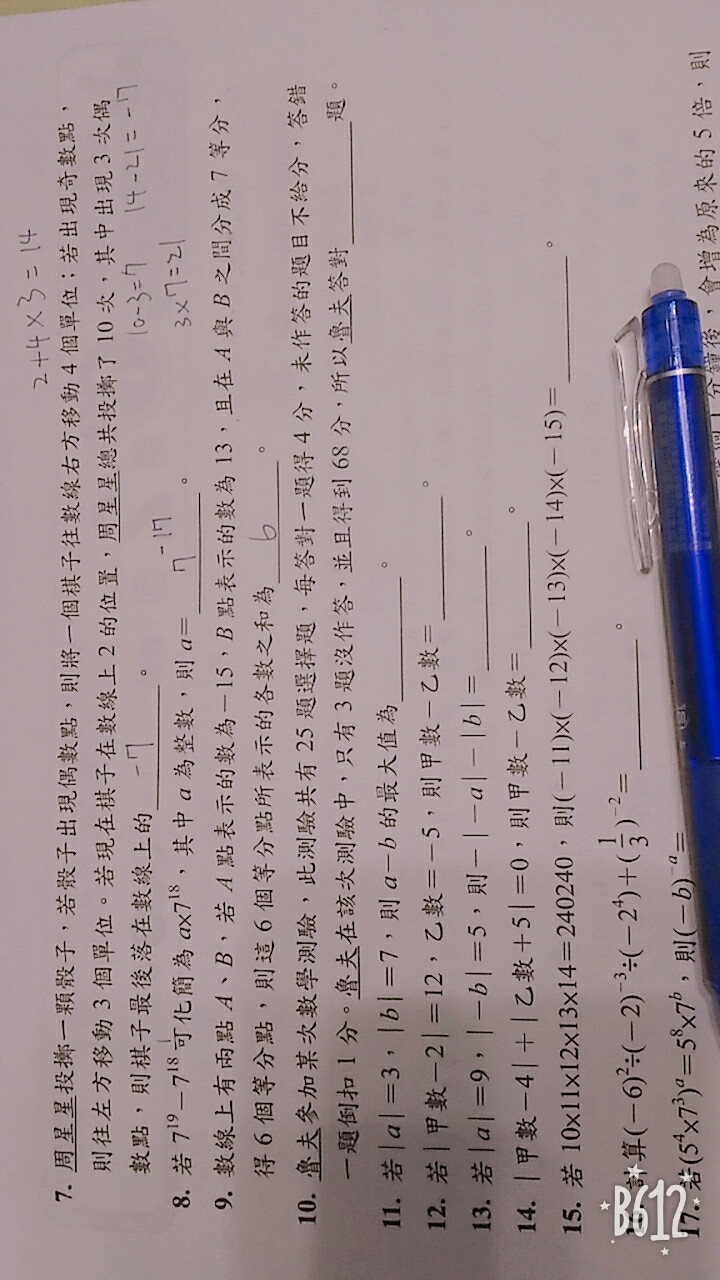 2+4×3=14
7. 周星星投擲一顆骰子，若骰子出現偶數點，則將一個棋子往數線右方移動4個單位；若出現奇數點，
則往左方移動3個單位。若現在棋子在數線上2的位置，周星星總共投擲了10次，其中出現3次偶
數點，則棋子最後落在數線上的 -7 。
10-3=7 14-21=-7
3×7=21
8. 若7¹⁹－7¹⁸可化簡為a×7¹⁸，其中a為整數，則a= 7⁻¹⁷ 。
9. 數線上有兩點A、B，若A點表示的數為－15，B點表示的數為13，且在A與B之間分成7等分，
得6個等分點，則這6個等分點所表示的各數之和為 6 。
10. 魯夫參加某次數學測驗，此測驗共有25題選擇題，每答對一題得4分，未作答的題目不給分，答錯
一題倒扣1分。魯夫在該次測驗中，只有3題沒作答，並且得到68分，所以魯夫答對 題。
11. 若|a|=3，|b|=7，則a－b的最大值為 。
12. 若|甲數－2|=12，乙數=－5，則甲數－乙數= 。
13. 若|a|=9，|－b|=5，則－|－a|－|b|= 。
14. |甲數－4|＋|乙數＋5|=0，則甲數－乙數= 。
15. 若10×11×12×13×14=240240，則(－11)×(－12)×(－13)×(－14)×(－15)= 。
計算(－6)²÷(－2)⁻³÷(－2⁴)＋(1/3)⁻²= 。
17. 若(5⁴×7³)ᵃ=5⁸×7ᵇ，則(－b)⁻ᵃ=
分鐘後，會增為原來的5倍，則
B612